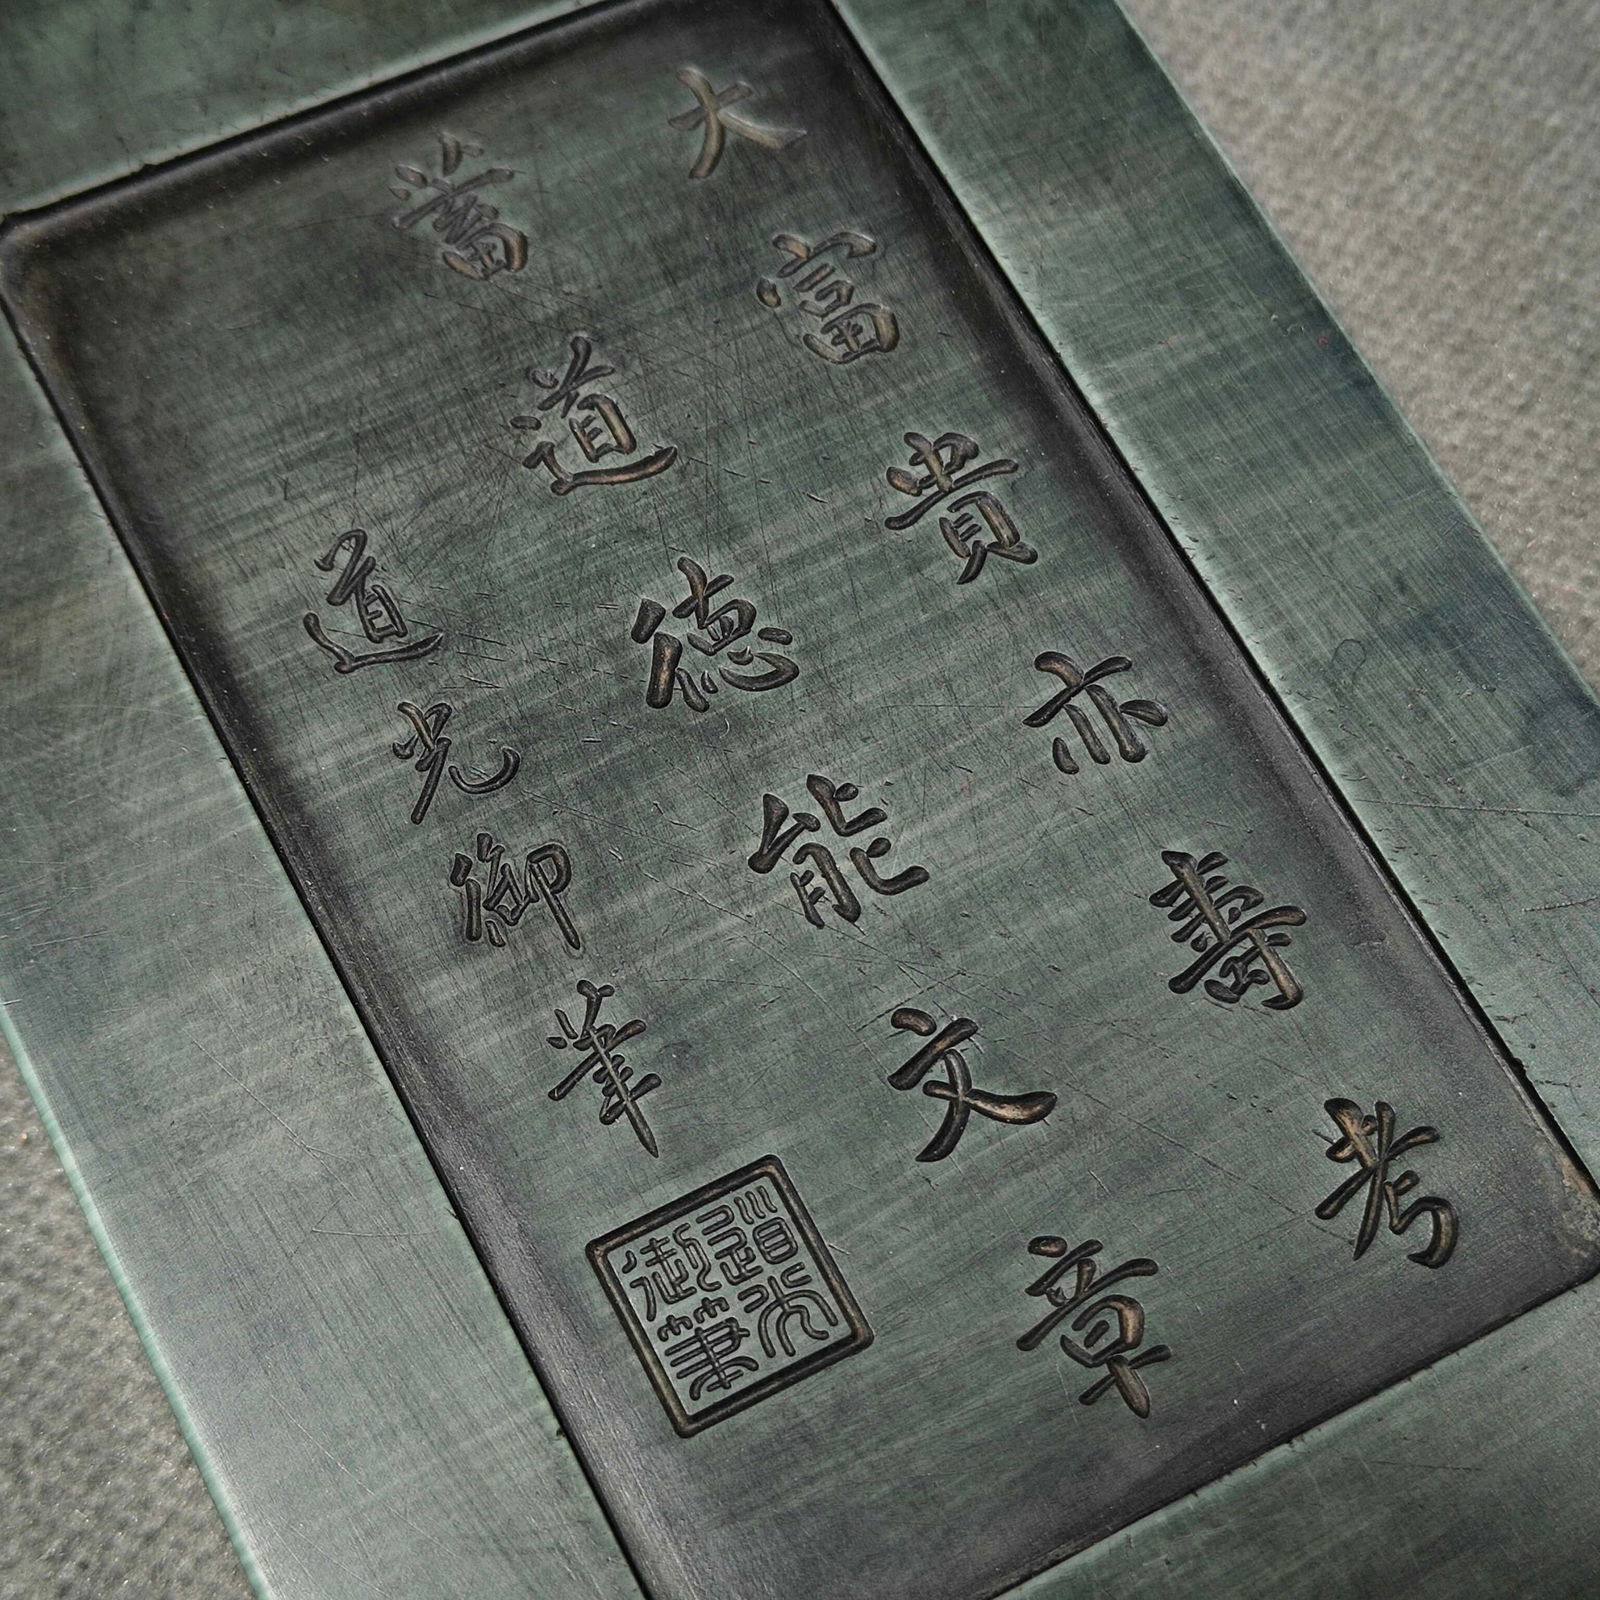 大富貴亦壽考
蓄道德能文章
道光御筆
道光御筆